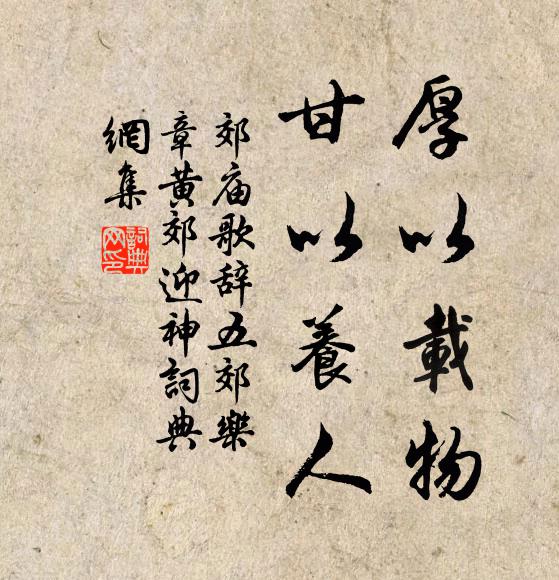 厚以載物
甘以養人
郊庙歌辞五郊樂
章黄郊迎神詞典
網集
詞典
网印